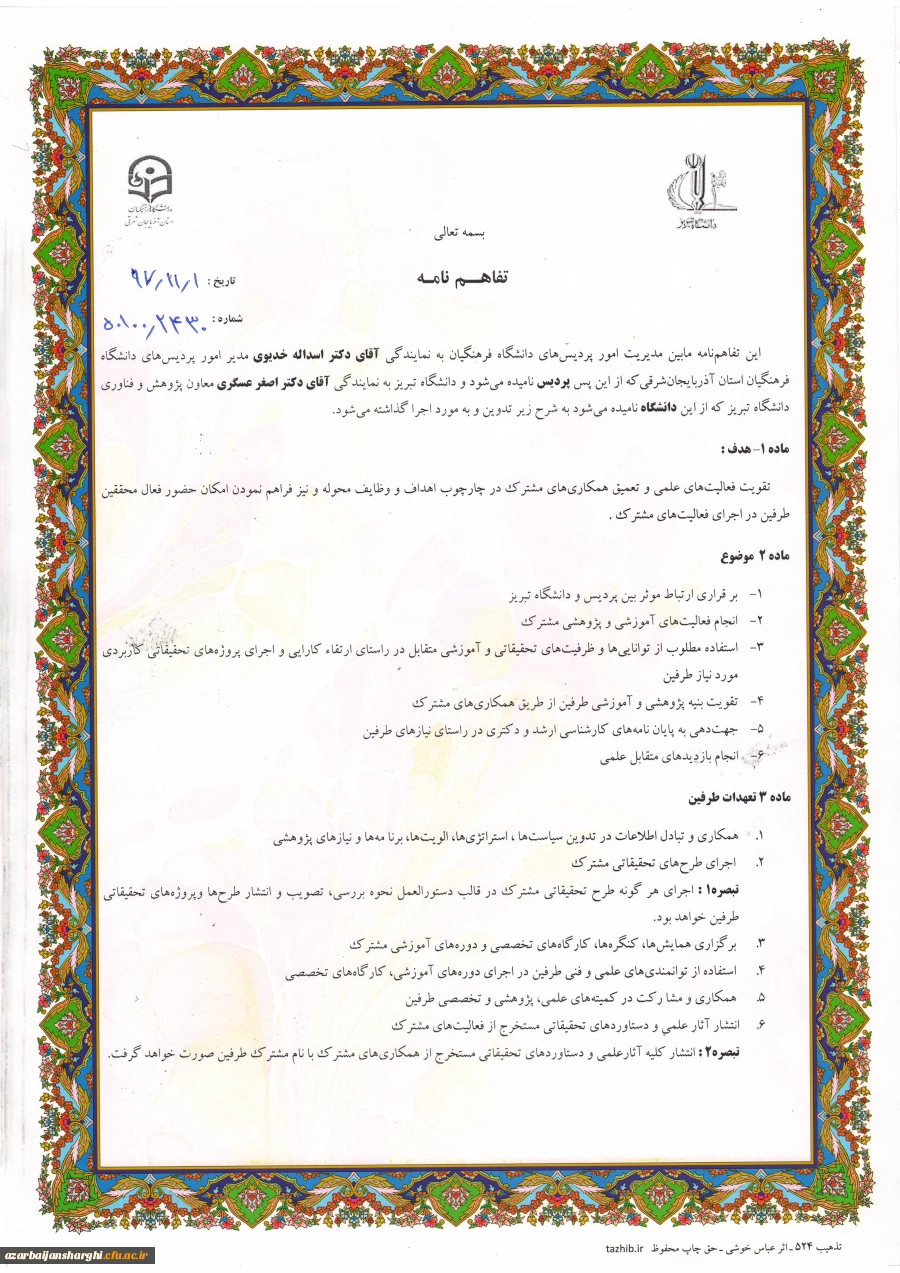 دانشگاه تبریز
دانشگاه فرهنگیان
استان آذربایجان شرقی
بسمه تعالی
تفاهـــم نامـه
تاریخ : ۹۷/۱۱/۱
شماره : ۵۰۱۰۰/۲۴۳۰
این تفاهم‌نامه مابین مدیریت امور پردیس‌های دانشگاه فرهنگیان به نمایندگی آقای دکتر اسداله خدیوی مدیر امور پردیس‌های دانشگاه
فرهنگیان استان آذربایجان‌شرقی‌که از این پس پردیس نامیده می‌شود و دانشگاه تبریز به نمایندگی آقای دکتر اصغر عسگری معاون پژوهش و فناوری
دانشگاه تبریز که از این دانشگاه نامیده می‌شود به شرح زیر تدوین و به مورد اجرا گذاشته می‌شود.
ماده ۱- هدف :
تقویت فعالیت‌های علمی و تعمیق همکاری‌های مشترک در چارچوب اهداف و وظایف محوله و نیز فراهم نمودن امکان حضور فعال محققین
طرفین در اجرای فعالیت‌های مشترک .
ماده ۲ موضوع
۱- بر قراری ارتباط موثر بین پردیس و دانشگاه تبریز
۲- انجام فعالیت‌های آموزشی و پژوهشی مشترک
۳- استفاده مطلوب از توانایی‌ها و ظرفیت‌های تحقیقاتی و آموزشی متقابل در راستای ارتقاء کارایی و اجرای پروژه‌های تحقیقاتی کاربردی
مورد نیاز طرفین
۴- تقویت بنیه پژوهشی و آموزشی طرفین از طریق همکاری‌های مشترک
۵- جهت‌دهی به پایان نامه‌های کارشناسی ارشد و دکتری در راستای نیازهای طرفین
۶- انجام بازدیدهای متقابل علمی
ماده ۳ تعهدات طرفین
۱. همکاری و تبادل اطلاعات در تدوین سیاست‌ها ، استراتژی‌ها، الویت‌ها، برنا مه‌ها و نیازهای پژوهشی
۲. اجرای طرح‌های تحقیقاتی مشترک
تبصره۱ : اجرای هر گونه طرح تحقیقاتی مشترک در قالب دستورالعمل نحوه بررسی، تصویب و انتشار طرح‌ها وپروژه‌های تحقیقاتی
طرفین خواهد بود.
۳. برگزاری همایش‌ها، کنگره‌ها، کارگاه‌های تخصصی و دوره‌های آموزشی مشترک
۴. استفاده از توانمندی‌های علمی و فنی طرفین در اجرای دوره‌های آموزشی، کارگاه‌های تخصصی
۵. همکاری و مشا رکت در کمیته‌های علمی، پژوهشی و تخصصی طرفین
۶. انتشار آثار علمی و دستاوردهای تحقیقاتی مستخرج از فعالیت‌های مشترک
تبصره۲ : انتشار کلیه آثارعلمی و دستاوردهای تحقیقاتی مستخرج از همکاری‌های مشترک با نام مشترک طرفین صورت خواهد گرفت.
تذهیب ۵۲۴ ـ اثر عباس خوشی ـ حق چاپ محفوظ tazhib.ir
azarbaijansharghi.cfu.ac.ir